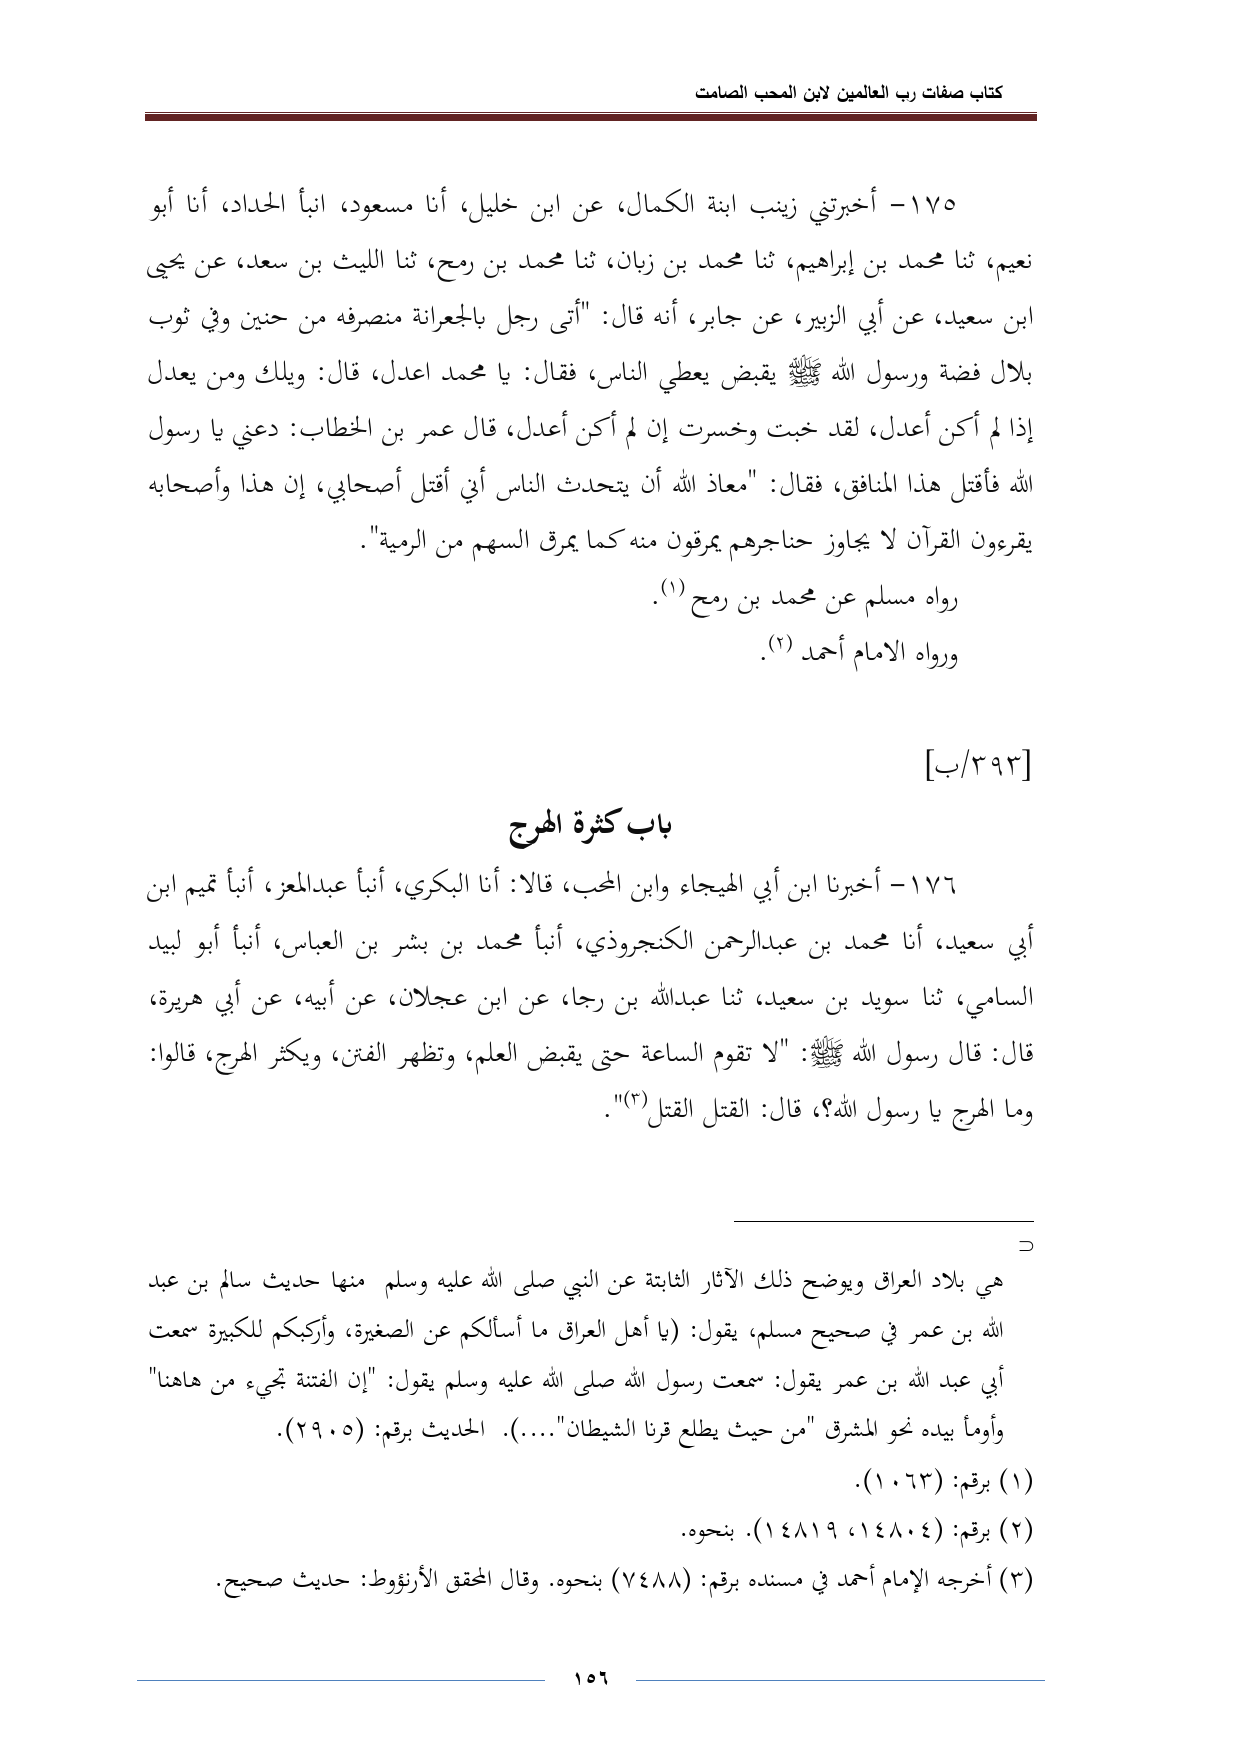 كتاب صفات رب العالمين لابن المحب الصامت
١٧٥- أخبرتني زينب ابنة الكمال، عن ابن خليل، أنا مسعود، انبأ الحداد، أنا أبو
نعيم، ثنا محمد بن إبراهيم، ثنا محمد بن زبان، ثنا محمد بن رمح، ثنا الليث بن سعد، عن يحيى
ابن سعيد، عن أبي الزبير، عن جابر، أنه قال: "أتى رجل بالجعرانة منصرفه من حنين وفي ثوب
بلال فضة ورسول الله ﷺ يقبض يعطي الناس، فقال: يا محمد اعدل، قال: ويلك ومن يعدل
إذا لم أكن أعدل، لقد خبت وخسرت إن لم أكن أعدل، قال عمر بن الخطاب: دعني يا رسول
الله فأقتل هذا المنافق، فقال: "معاذ الله أن يتحدث الناس أني أقتل أصحابي، إن هذا وأصحابه
يقرءون القرآن لا يجاوز حناجرهم يمرقون منه كما يمرق السهم من الرمية".
رواه مسلم عن محمد بن رمح (١).
ورواه الامام أحمد (٢).
[٣٩٣/ب]
باب كثرة الهرج
١٧٦- أخبرنا ابن أبي الهيجاء وابن المحب، قالا: أنا البكري، أنبأ عبدالمعز، أنبأ تميم ابن
أبي سعيد، أنا محمد بن عبدالرحمن الكنجروذي، أنبأ محمد بن بشر بن العباس، أنبأ أبو لبيد
السامي، ثنا سويد بن سعيد، ثنا عبدالله بن رجا، عن ابن عجلان، عن أبيه، عن أبي هريرة،
قال: قال رسول الله ﷺ: "لا تقوم الساعة حتى يقبض العلم، وتظهر الفتن، ويكثر الهرج، قالوا:
وما الهرج يا رسول الله؟، قال: القتل القتل(٣)".
⊃
هي بلاد العراق ويوضح ذلك الآثار الثابتة عن النبي صلى الله عليه وسلم منها حديث سالم بن عبد
الله بن عمر في صحيح مسلم، يقول: (يا أهل العراق ما أسألكم عن الصغيرة، وأركبكم للكبيرة سمعت
أبي عبد الله بن عمر يقول: سمعت رسول الله صلى الله عليه وسلم يقول: "إن الفتنة تجيء من هاهنا"
وأومأ بيده نحو المشرق "من حيث يطلع قرنا الشيطان"....). الحديث برقم: (٢٩٠٥).
(١) برقم: (١٠٦٣).
(٢) برقم: (١٤٨٠٤، ١٤٨١٩). بنحوه.
(٣) أخرجه الإمام أحمد في مسنده برقم: (٧٤٨٨) بنحوه. وقال المحقق الأرنؤوط: حديث صحيح.
١٥٦